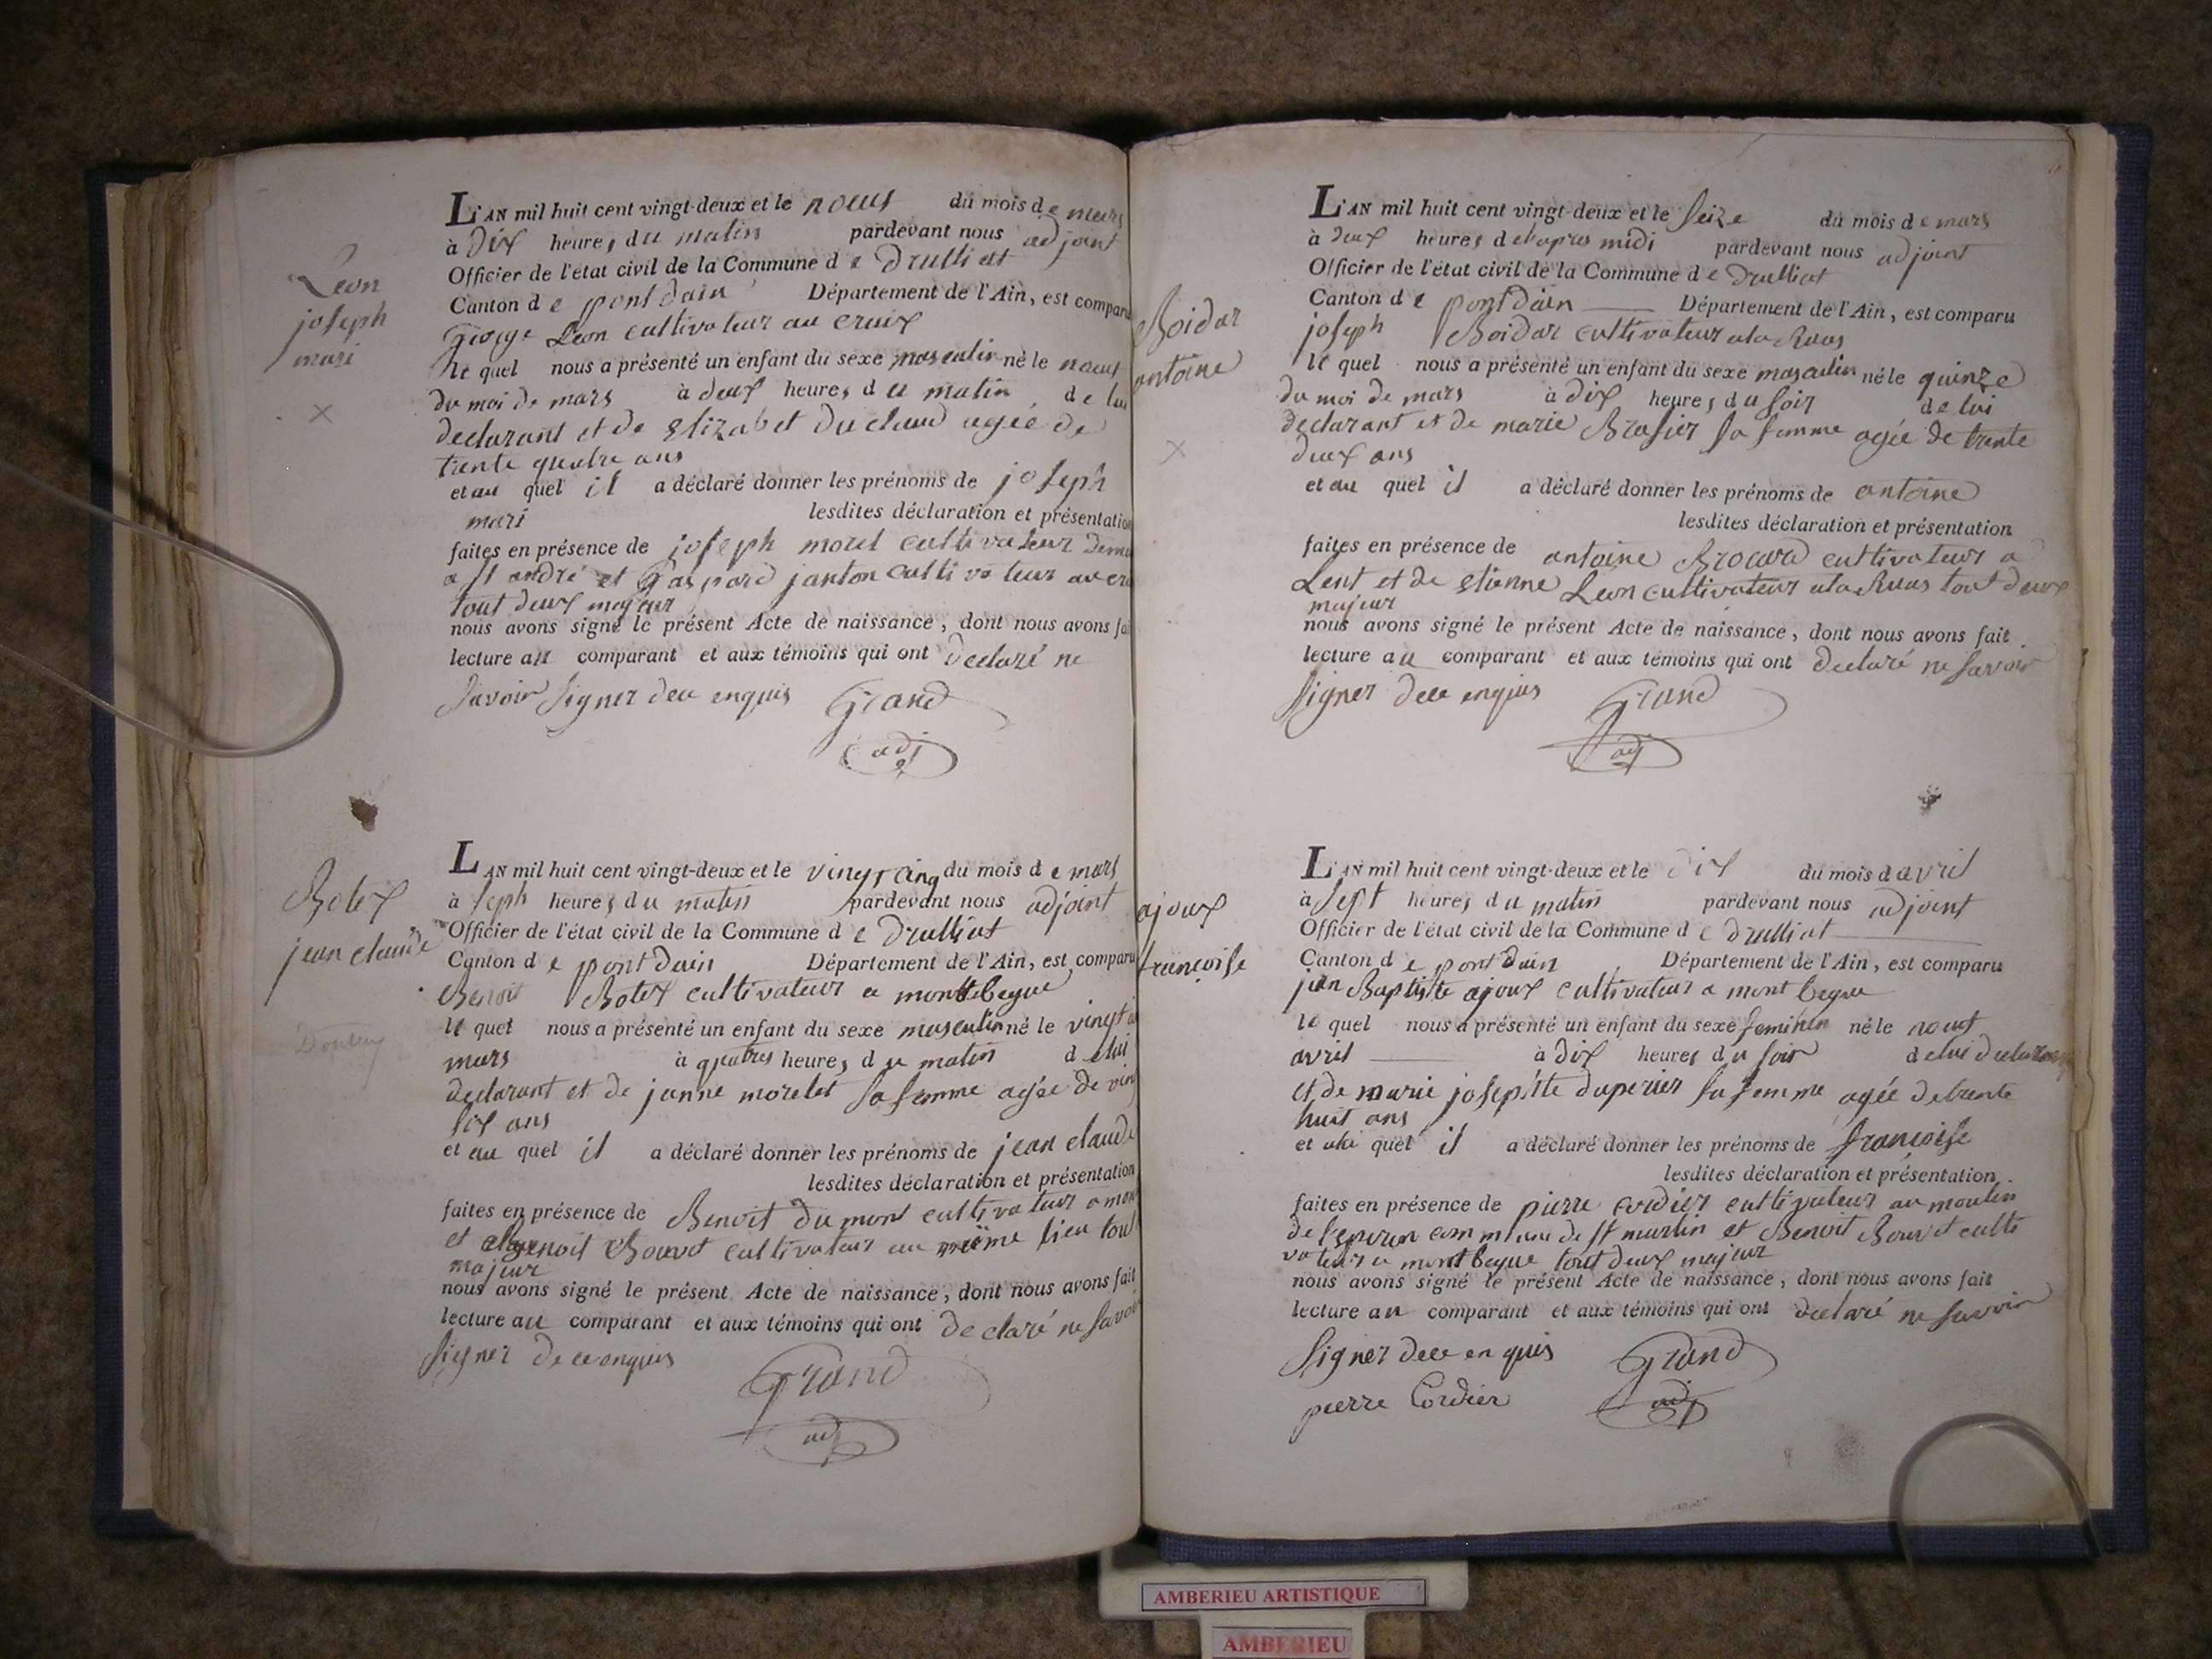 Leon
joseph
mari
L'AN mil huit cent vingt-deux et le noeuf du mois de mars
à Dix heures du matin pardevant nous adjoint
Officier de l'état civil de la Commune de Drulliat
Canton de pont dain Département de l'Ain, est comparu
George Leon cultivateur au croix
le quel nous a présenté un enfant du sexe masculin né le noeuf
du moi de mars à deux heures du matin de lui
declarant et de Elizabet Duclaud agée de
trente quatre ans
et au quel il a déclaré donner les prénoms de joseph
mari lesdites déclaration et présentation
faites en présence de joseph morel cultivateur
a st andré et Gaspard janton cultivateur au
tout deux majeur
nous avons signé le présent Acte de naissance, dont nous avons fai
lecture au comparant et aux témoins qui ont declaré ne
savoir signer dece enquis Grand
adj
Botex
jean claude
L'AN mil huit cent vingt-deux et le vingt cinq du mois de mars
à seph heures du matin pardevant nous adjoint
Officier de l'état civil de la Commune de Drulliat
Canton de pont dain Département de l'Ain, est comparu
Benoit Botex cultivateur a montbegue
le quel nous a présenté un enfant du sexe masculin né le vingt
mars à quatres heures du matin de lui
declarant et de janne morelet sa femme agée de vin
six ans
et au quel il a déclaré donner les prénoms de jean claude
lesdites déclaration et présentation
faites en présence de Benoit Dumont cultivateur a mon
et Benoit Bouvet cultivateur au même lieu tout
majeur
nous avons signé le présent Acte de naissance, dont nous avons fait
lecture au comparant et aux témoins qui ont declaré ne savoir
signer de ce enquis Grand
adj
Boidar
antoine
L'AN mil huit cent vingt-deux et le seize du mois de mars
à deux heures de laprès midi pardevant nous adjoint
Officier de l'état civil de la Commune de Drulliat
Canton de pont dain Département de l'Ain, est comparu
joseph Boidar cultivateur ala Ruas
le quel nous a présenté un enfant du sexe masculin né le quinze
du moi de mars à dix heures du soir de lui
declarant et de marie Brasier sa femme agée de trente
deux ans
et au quel il a déclaré donner les prénoms de antoine
lesdites déclaration et présentation
faites en présence de antoine Brocard cultivateur a
Lent et de etienne Leon cultivateur ala Ruas tout deux
majeur
nous avons signé le présent Acte de naissance, dont nous avons fait
lecture au comparant et aux témoins qui ont declaré ne savoir
signer dece enquis Grand
adj
ajoux
françoise
L'AN mil huit cent vingt-deux et le dix du mois d avril
à sept heures du matin pardevant nous adjoint
Officier de l'état civil de la Commune de Drulliat
Canton de pont dain Département de l'Ain, est comparu
jean Baptiste ajoux cultivateur a mont begue
le quel nous a présenté un enfant du sexe feminin né le noeuf
avril à dix heures du soir de lui declarant
et de marie josephte duperier sa femme agée de trente
huit ans
et quel il a déclaré donner les prénoms de françoise
lesdites déclaration et présentation
faites en présence de pierre cordier cultivateur au moulin
de commune de st martin et Benoit Bouvet culti
vateur a mont begue tout deux majeur
nous avons signé le présent Acte de naissance, dont nous avons fait
lecture au comparant et aux témoins qui ont declaré ne savoir
signer dece en quis Grand
pierre Cordier adj
AMBERIEU ARTISTIQUE
AMBERIEU